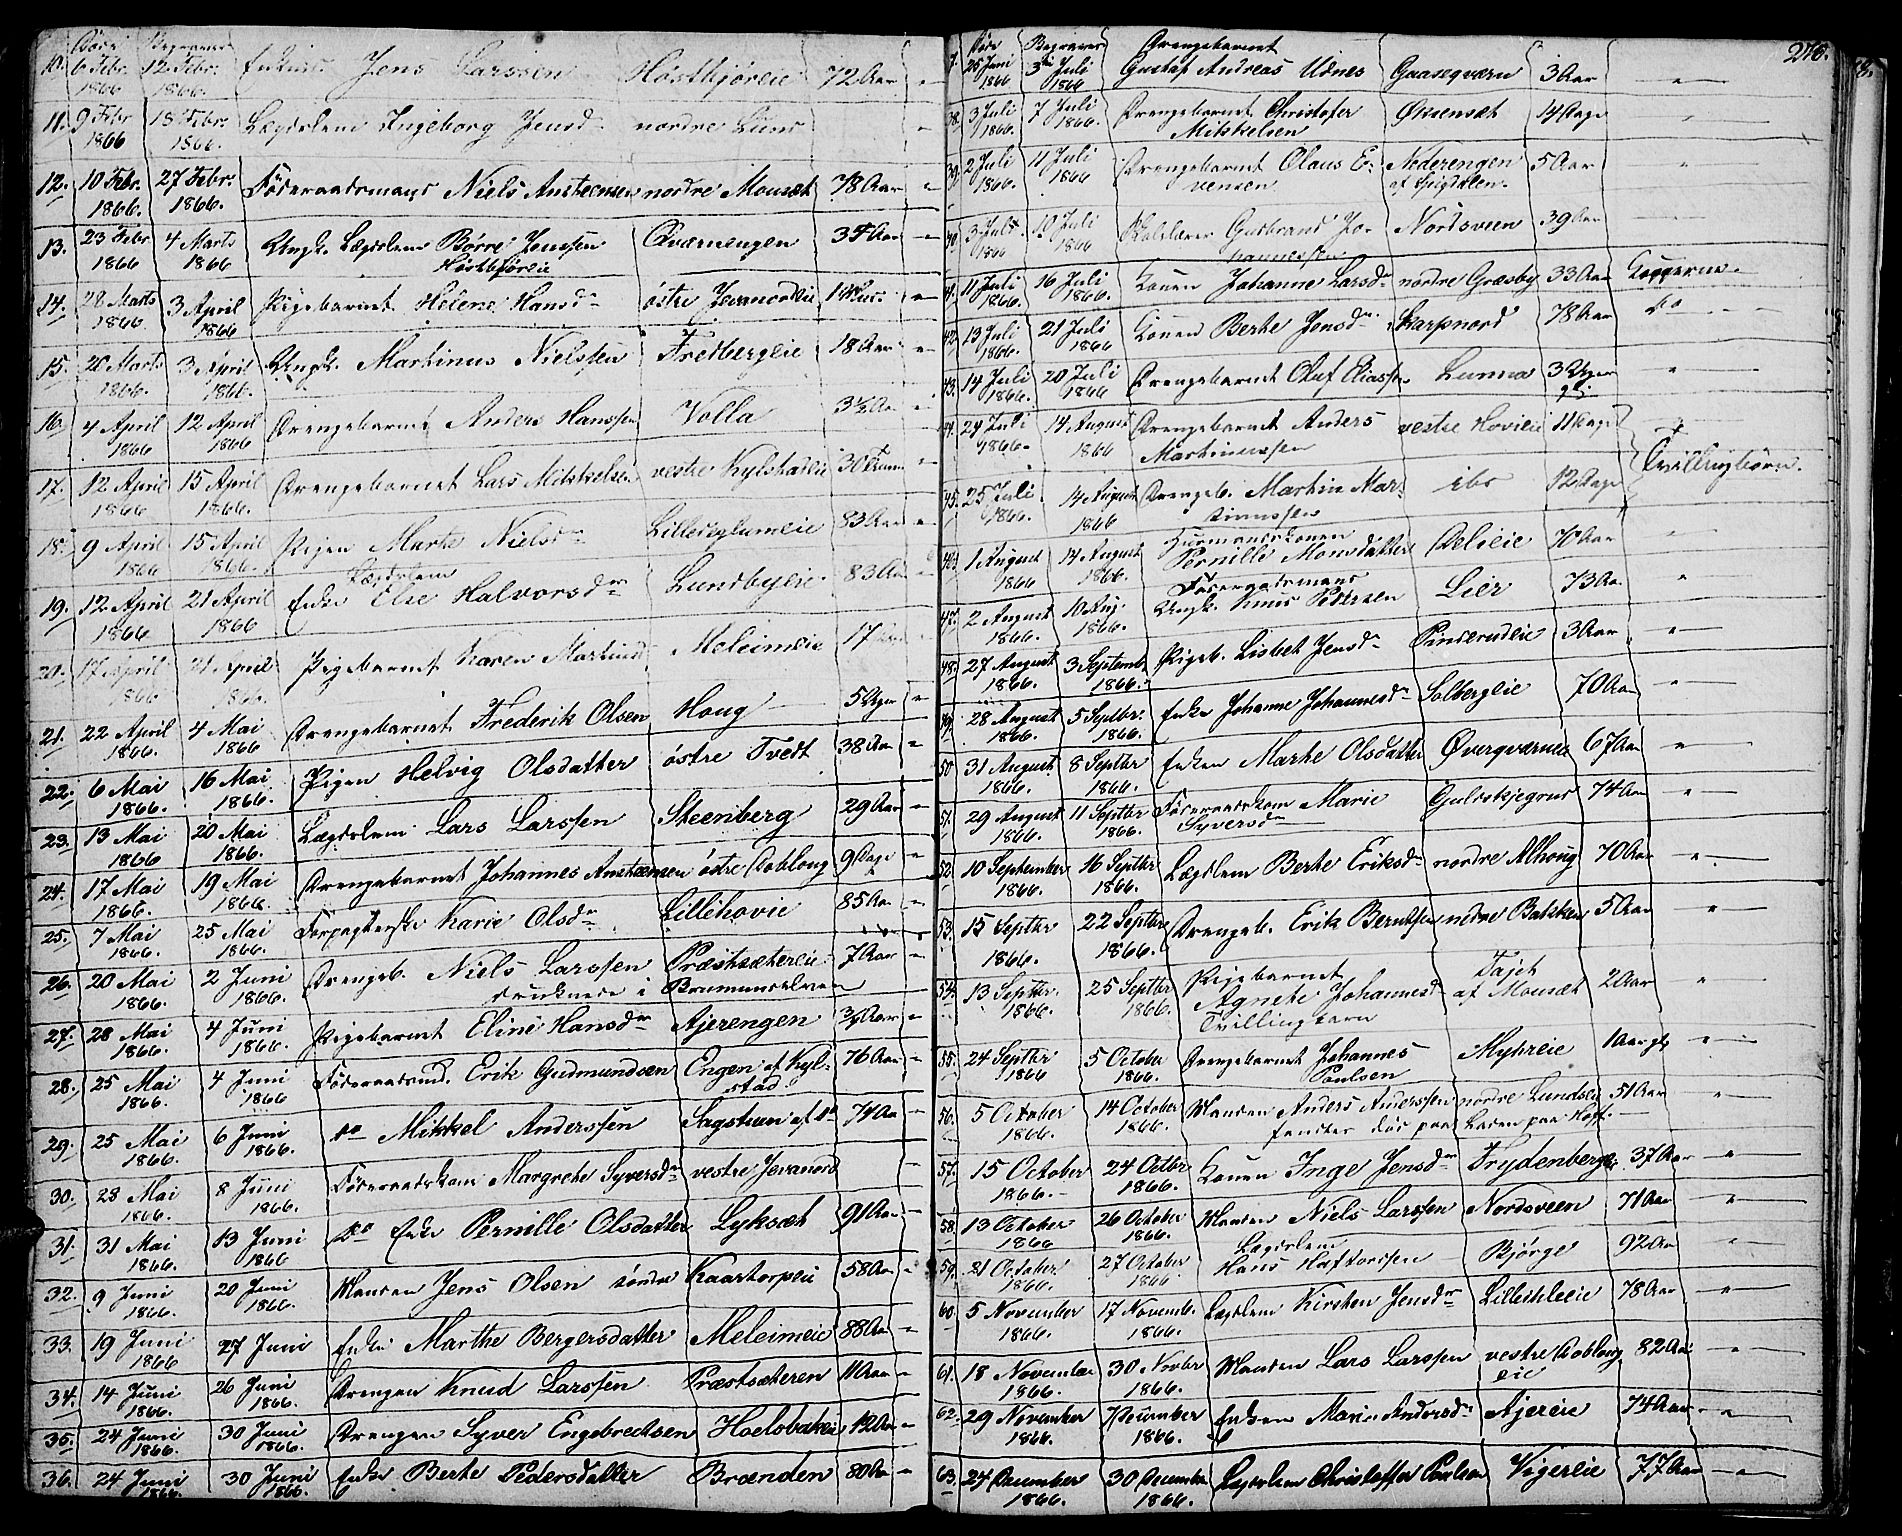 Døde Begravne
10. 6 Febr. 1866 12 Febr. 1866. Jens Larssen Høstbjøreie 72 Aar "
11. 9 Febr 1866 18 Febr. 1866. Lægdslem Ingeborg Jensdr nordre Lund "
12. 10 Febr. 1866. 27 Febr. 1866. Føderaadsmand Niels Amstensen nordre Mousæt 78 Aar "
13. 23 Febr 1866 4 Marts 1866 Ungk. Lægdslem Børre Jenssen Qværnengen "
Høstbjøreie
14. 28 Marts 1866 3 April 1866 Pigebarnet Helene Hansdr østre Jevanordeie "
15. 20 Marts 1866. 3 April 1866. Ungk. Martinus Nielssen Fredbergeie 18 Aar "
16. 4 April 1866 12 April 1866 Drengebarnet Anders Hanssen Volla 3½ Aar "
17. 12 April 1866 15 April 1866. Drengebarnet Lars Mikkelsen vestre Kylstadeie "
18. 9 April 1866 15 April 1866. Pigen Marte Nielsdr 83 Aar "
Lægdslem
19. 12 April 1866 21 April 1866 Enke Else Halvorsdr Lundbyeie 83 Aar "
20. 17 April 1866 21 April 1866. Pigebarnet Karen Martinusd Meleimeie 17 "
21. 22 April 1866. 4 Mai 1866 Drengebarnet Frederik Olsen Houg 5 Uger "
22. 6 Mai 1866. 16 Mai 1866. Pigen Helvig Olsdatter østre Tvedt 38 Aar "
23. 13 Mai 1866 20 Mai 1866. Lægdslem Lars Larssen Steenberg 29 Aar "
24. 17 Mai 1866. 19 Mai 1866. Drengebarnet Johannes Amstensen østre Aablong 9 Dage "
25. 7 Mai 1866. 25 Mai 1866. Forpagterske Karie Olsdr Lillehovie 85 Aar "
26. 20 Mai 1866. 2 Juni 1866. Drengeb. Niels Larssen Præstsætereie 7 Aar "
druknede i Brumundelven
27. 28 Mai 1866. 4 Juni 1866. Pigebarnet Eline Hansdr Ajerengen ¾ Aar "
28. 25 Mai 1866. 4 Juni 1866 Føderaadsmd. Erik Gudmundsen Engen af Kyl- 76 Aar "
stad
29. 25 Mai 1866. 6 Juni 1866. do Mikkel Anderssen Sagstuen af do 74 Aar "
30. 28 Mai 1866. 8 Juni 1866. Føderaadskone Margrethe Syversdr vestre Jevanord "
31. 31 Mai 1866. 13 Juni 1866 do Enke Pernille Olsdatter Lyksæt 91 Aar "
32. 9 Juni 1866. 20 Juni 1866. Manden Jens Olsen søndre Kaastorpeie 58 Aar "
33. 19 Juni 1866 27 Juni Enke Marthe Bergersdatter Meleimeie 88 Aar "
34. 14 Juni 1866. 26 Juni 1866. Drengen Knud Larssen Præstsæteren 11 Aar "
35. 24 Juni 1866. 30 Juni 1866. Drengen Syver Engebrechtsen Hoelsbakken 12 Aar "
36. 24 Juni 1866. 30 Juni 1866. Enke Berte Pedersdatter Brænden 80 Aar "
275.
Døde Begravne Drengebarnet
7. 25 Juni 1866 3die Juli 1866 Gustaf Andreas Udnes Gaaseqværn 3 Aar "
38. 3 Juli 1866. 7 Juli 1866. Drengebarnet Christofer Øksensæt 14 Dage "
Mikkelsen
39. 2 Juli 1866. 11 Juli 1866 Drengebarnet Olaus E- Nederengen 5 Aar "
vensen
40. 3 Juli 1866 10 Juli 1866 Gudbrand Jo- Nordsveen 39 Aar
hannessen
41. 11 Juli 1866. 16 Juli 1866. Konen Johanne Larsdr nordre Græsby 33 Aar Kopperne.
42. 13 Juli 1866. 21 Juli 1866 Konen Berte Jensdr Skarpnord 78 Aar do
43. 14 Juli 1866. 20 Juli 1866 Drengebarnet Oluf Eliassen Lunna 3 Uger "
44. 24 Juli 1866. 14 August 1866 Drengebarnet Anders vestre Hovieie 11 Dage
Martinussen
Tvillingbørn.
45. 25 Juli 1866. 14 August 1866 Drengeb. Martin Mar- ibs 12 Dage
tinussen
Huusmandskonen
46. 1 August 1866 14 August 1866. Pernille Monsdatter Delieie 70 Aar "
Føderaadsmand
47. 2 August 1866. 10 Aug. 1866. Ungk. Knud Pedersen Lier 73 Aar "
48. 27 August 1866. 3 Septemb. 1866. Pigeb. Lisbet Jensdr Pinderudeie 3 Aar "
49. 28 August 1866. 5 Septbr. 1866. Enke Johanne Johannesdr Solbergeie 70 Aar "
50 31 August 1866. 8 Septbr 1866. Enken Marte Olsdatter Øverqværnes 67 Aar "
51. 29 August 1866. 11 Septbr 1866. Føderaadskone Marie Guldskjegrud 74 Aar "
Syversdr
52. 10 September 1866. 16 Septbr 1866. Lægdslem Berte Eriksdr nordre Alhoug 70 Aar "
53. 15 Septbr 1866. 22 Septbr 1866. Drengeb. Erik Berntssen nedre Bakken 5 Aar "
54. 13 Septbr. 1866. 25 Septbr 1866. Pigebarnet Fajet 2 Aar "
Agnete Johannesdr af Mousæt
Tvillingbarn
55. 24 Septbr 1866 5 October 1866. Drengebarnet Johannes Myhreie 1 Aar "
Poulsen
56. 5 October 1866. 14 October 1866. Manden Anders Anderssen nordre Lundseie 51 Aar "
fandtes død paa Laaen paa Hoff.
57. 15 October 1866. 24 Octbr 1866. Konen Inge Jensdr Frydenberg 37 Aar "
58. 13 October 1866 26 October 1866. Manden Niels Larssen Nordsveen 71 Aar "
Lægdslem
59. 21 October 1866. 27 October 1866 Hans Haftorssen Bjørge 92 Aar "
60. 5 November 1866. 17 Novemb. 1866. Lægdslem Kirsten Jensdr 78 Aar "
61. 18 November 1866. 30 Novbr 1866. Manden Lars Larssen vestre Aablong 82 Aar "
eie
62. 29 November 1866. 7 December 1866. Enken Marie Andersdr Ajereie 74 Aar "
63. 24 December 1866. 30 December 1866. Lægdslem Christoffer Poulsen Vigereie 77 Aar "